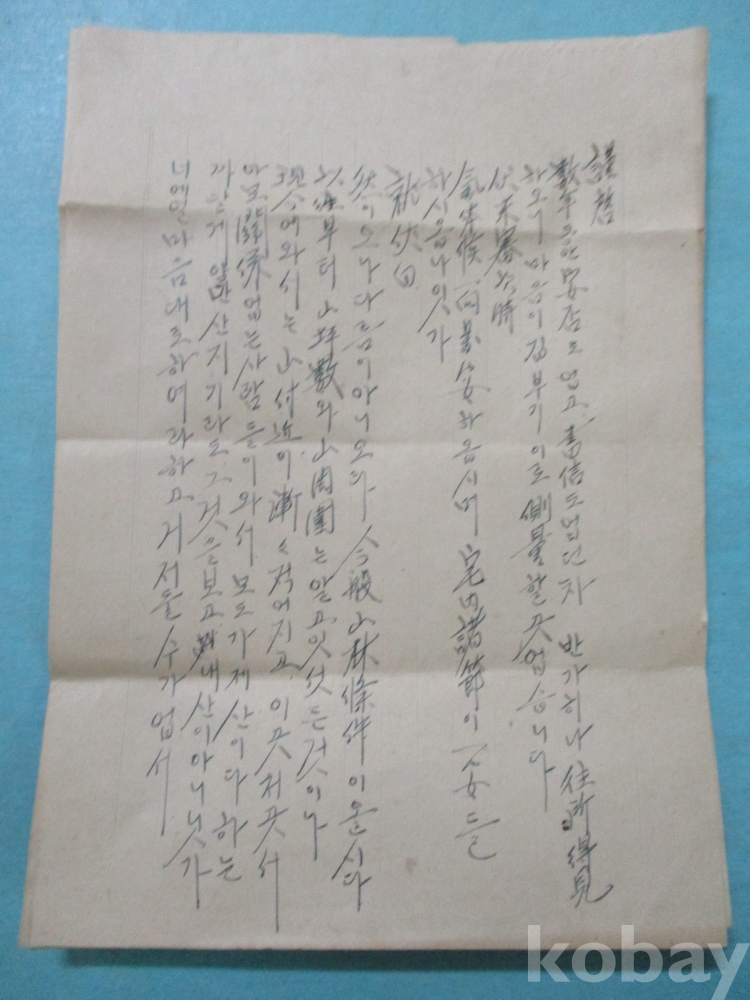 謹啓
數年도안 安否도 업고 書信도 업던차 반가히나 住所得見
하오니 마음이 깁부기 이로 測量할 곳 업습니다
伏未審此時
氣体候 一向萬安하옵시며 宅內諸節이 一安들
하시옵나잇가
伏白
然이오나 다름아니오라 今般 山林條件이올시다
부터 山坪數와 山周圍는 알고잇섯든것이나
現今에와서는 山付近이 漸々 적어지고 이곳저곳서
아모關係업는사람들이와서 모도가제산이다하는
까닭에 암만산지기라도 그것을보고 내산이아니닛가
너에일마음대로하여라하고 거저둘수가업서
kobay